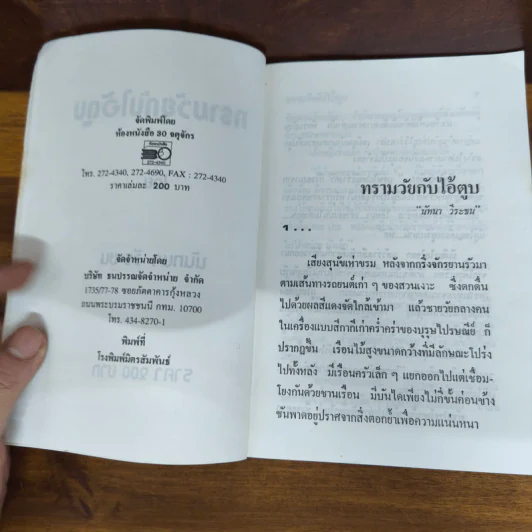 จัดพิมพ์โดย
ห้องหนังสือ 30 จตุจักร
272-4340
โทร. 272-4340, 272-4690, FAX : 272-4340
ราคาเล่มละ 200 บาท
จัดจำหน่ายโดย
บริษัท ธนบรรณจัดจำหน่าย จำกัด
1735/77-78 ซอยภัตตาคารกุ้งหลวง
ถนนพระบรมราชชนนี กทม. 10700
โทร. 434-8270-1
พิมพ์ที่
โรงพิมพ์มิตรสัมพันธ์
ทรามวัยกับไอ้ตูบ
"นัทนา วีระชน"
1...
เสียงสุนัขเห่าขรม หลังจากกริ่งจักรยานรัวมา
ตามเส้นทางรถยนต์เก่า ๆ ของสวนเงาะ ซึ่งดกดื่น
ไปด้วยผลสีแดงจัดใกล้เข้ามา แล้วชายวัยกลางคน
ในเครื่องแบบสีกากีเก่าคร่ำคร่าของบุรุษไปรษณีย์ ก็
ปรากฏขึ้น เรือนไม้สูงขนาดกว้างที่มีลักษณะโปร่ง
ไปทั้งหลัง มีเรือนครัวเล็ก ๆ แยกออกไปแต่เชื่อม-
โยงกันด้วยชานเรือน มีบันไดเพียงไม่กี่ขั้นค่อนข้าง
ชันพาดอยู่ปราศจากสิ่งตอกย้ำเพื่อความแน่นหนา